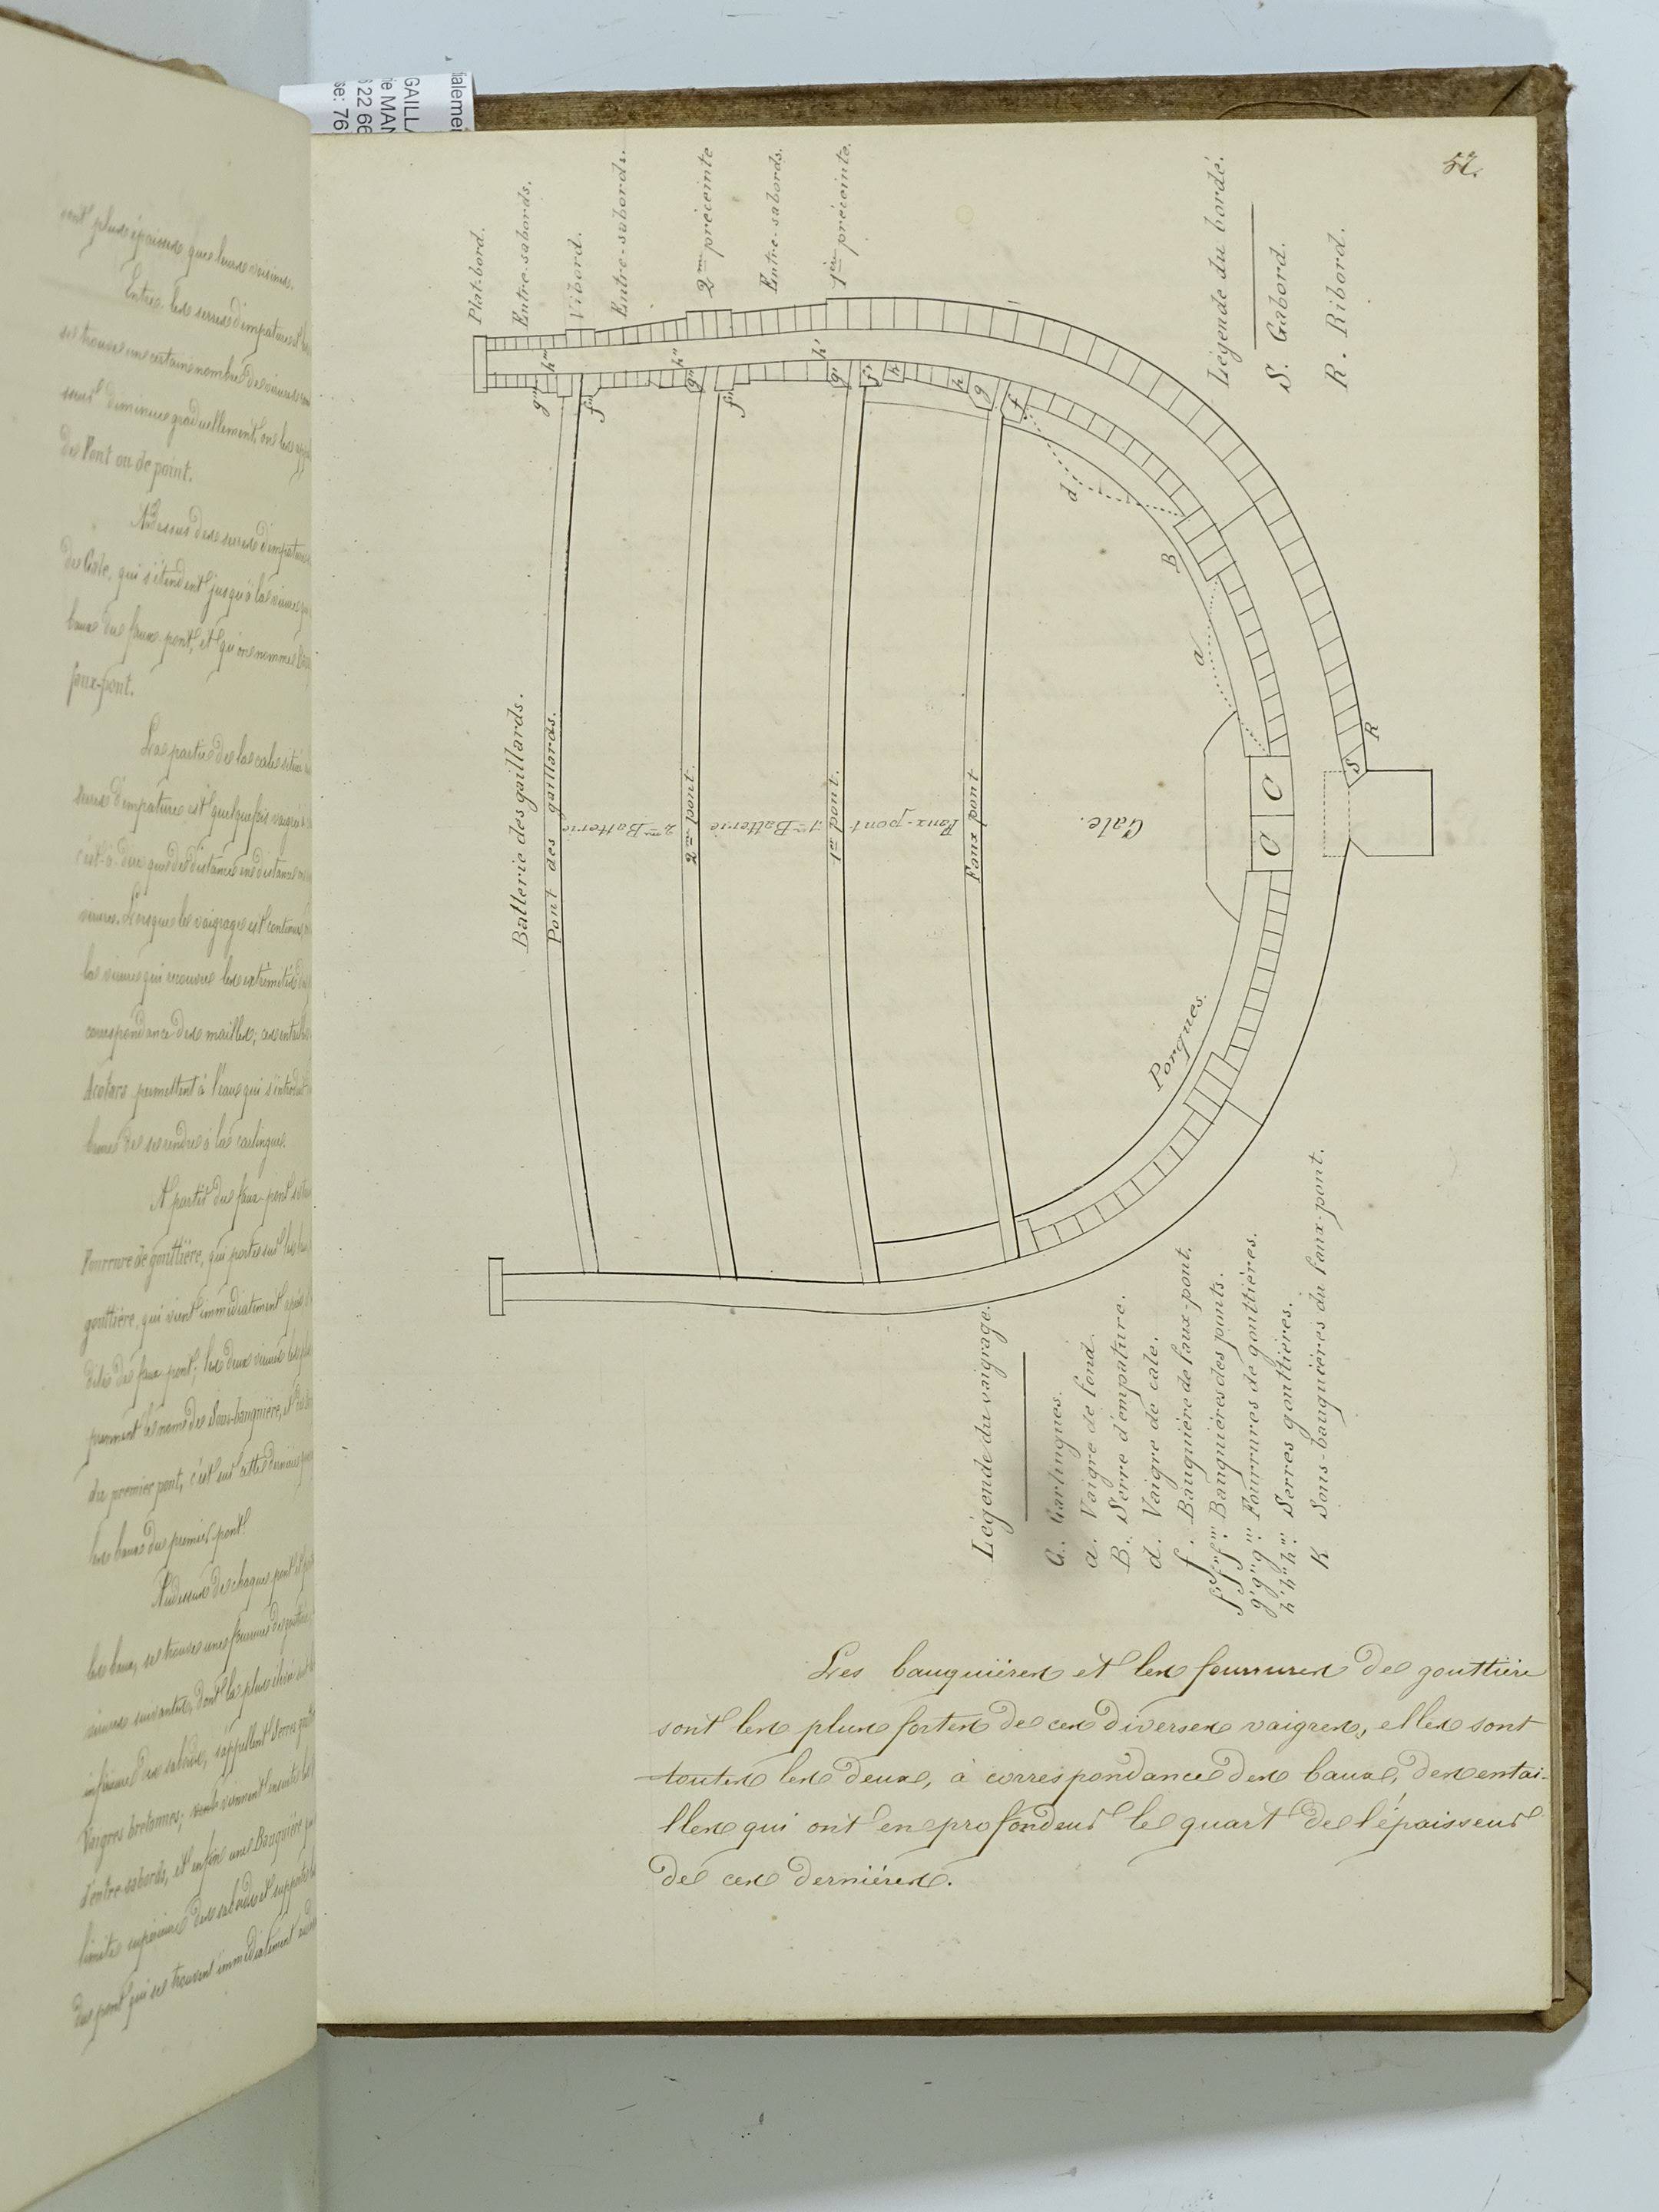 sont plus épaisses que leurs voisines.
Entre les serres d'empature et
se trouve un certain nombre de virures
diminue graduellement, on les
de Pont ou de point.
Au dessus des serres d'empature
de Cale, qui s'étendent jusqu'à la virure
baux du faux-pont, et qu'on nomme
faux-pont.
La partie de la cale située
serres d'empature est quelquefois
c'est-à-dire que de distance en distance
virures. Lorsque le vaigrage est continu
la virure qui recouvre les extrémités
correspondance des mailles; ces
permettent à l'eau qui s'introduit
de se rendre à la carlingue.
A partir du faux-pont
Fourrure de gouttière, qui porte sur les
gouttière, qui vient immédiatement après
dite de faux-pont; les deux virures
prennent le nom de Sous-bauquière, et
du premier pont, c'est sur cette dernière
les baux du premier pont.
Au dessus de chaque pont
les baux, se trouve une fourrure de gouttière
virures suivantes, dont la plus
inférieure des sabords, s'appellent Serres
Vaigres bretonnes; viennent ensuite
d'entre-sabords, et enfin une Bauquière
limite supérieure des sabords et supporte
du pont qui se trouve immédiatement
GAILL
MAN
22 66
76
52.
Plat-bord.
Entre-sabords.
Vibord.
Entre-sabords.
2me préceinte
Entre-sabords.
1ère préceinte.
Légende du bordé.
S. Gabord.
R. Ribord.
g''' h'''
f'''
g'' h''
f''
g' h'
f'
k
k
g
f
d
B
a
Batterie des gaillards.
Pont des gaillards.
2me Batterie
2me pont.
1ère Batterie
1er pont.
Faux-pont
Faux pont
Cale.
Porques.
C C
S
R
Légende du vaigrage.
C. Carlingues.
a. Vaigre de fond.
B. Serre d'empature.
d. Vaigre de cale.
f. Bauquière de faux-pont.
f' f'' f'''. Bauquières des ponts.
g' g'' g'''. Fourrures de gouttières.
h' h'' h'''. Serres gouttières.
K Sous-bauquières du faux-pont.
Les bauquières et les fourrures de gouttière
sont les plus fortes de ces diverses vaigres, elles sont
toutes les deux, à correspondance des baux, des entai-
lles qui ont en profondeur le quart de l'épaisseur
de ces dernières.